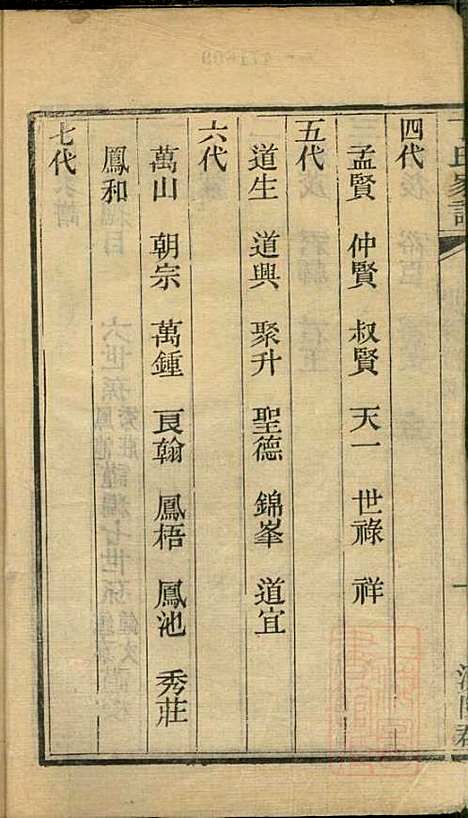 氏家譜
四代
孟賢 仲賢 叔賢 天一 世祿 祥
五代
道生 道興 聚升 聖德 錦峯 道宜
六代
萬山 朝宗 萬鍾 良翰 鳳梧 鳳池 秀莊
鳳和
七代